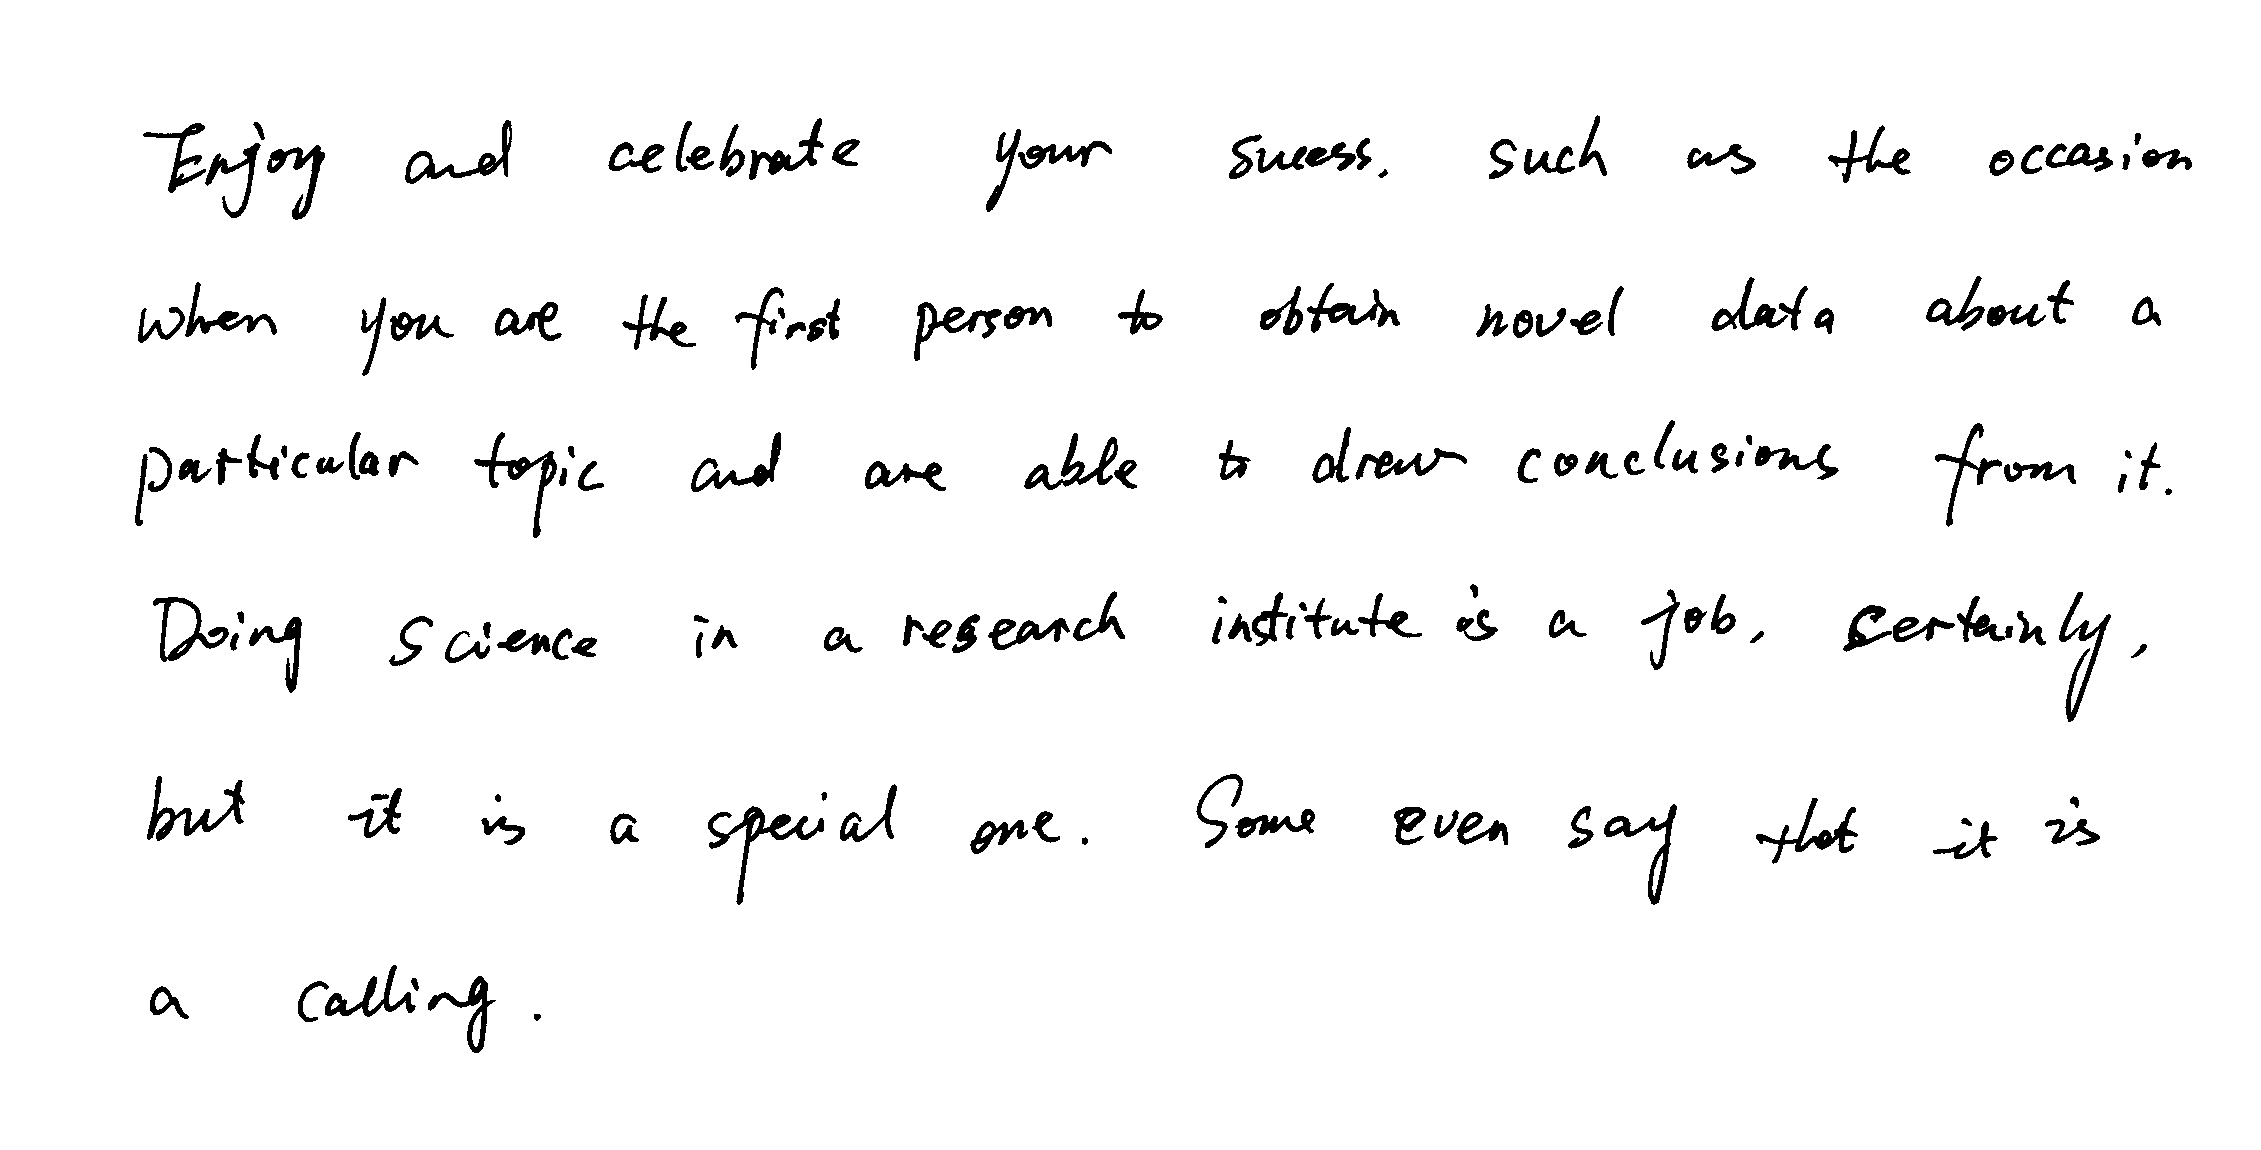 Enjoy and celebrate your sucess, such as the occasion
when you are the first person to obtain novel data about a
particular topic and are able to drew conclusions from it.
Doing Science in a research institute is a job, sertainly,
but it is a special one. Some even say that it is
a calling.